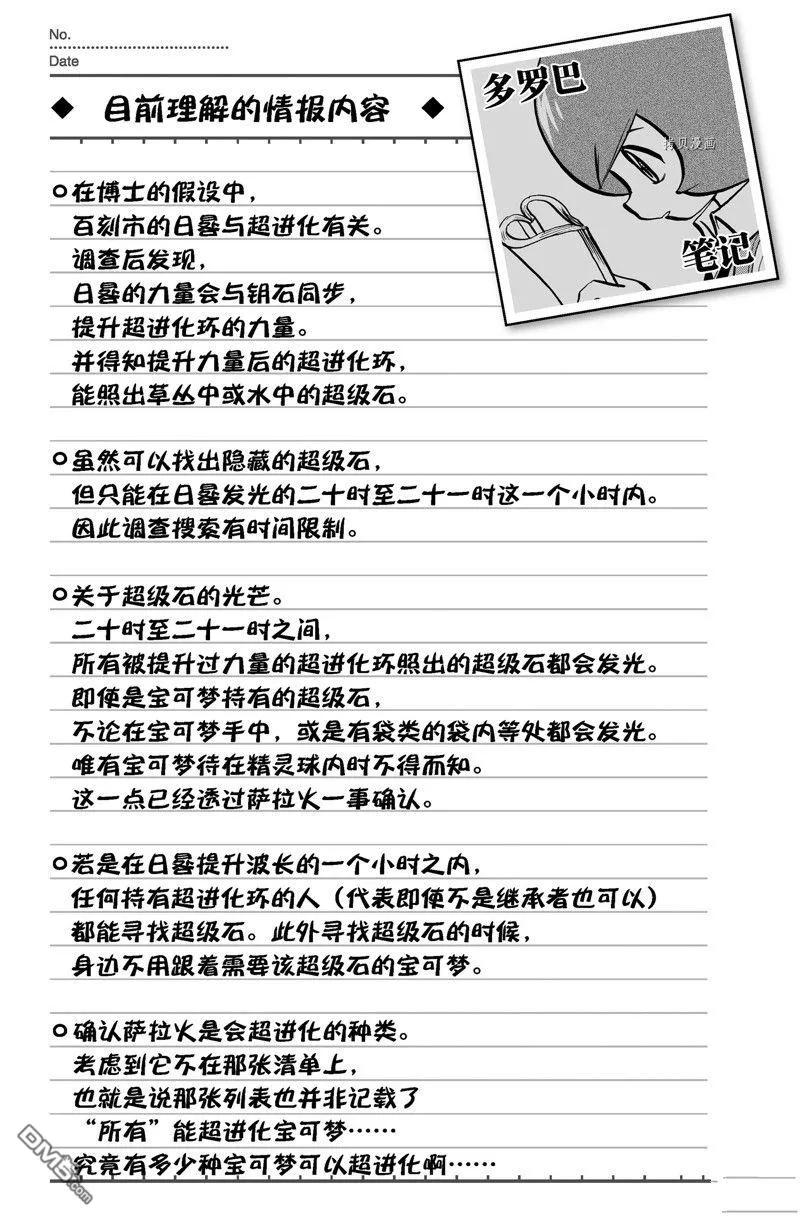 No.
Date
◆ 目前理解的情报内容 ◆
多罗巴
拷贝漫画
笔记
在博士的假设中，
百刻市的日晷与超进化有关。
调查后发现，
日晷的力量会与钥石同步，
提升超进化环的力量。
并得知提升力量后的超进化环，
能照出草丛中或水中的超级石。
虽然可以找出隐藏的超级石，
但只能在日晷发光的二十时至二十一时这一个小时内。
因此调查搜索有时间限制。
关于超级石的光芒。
二十时至二十一时之间，
所有被提升过力量的超进化环照出的超级石都会发光。
即使是宝可梦持有的超级石，
不论在宝可梦手中，或是有袋类的袋内等处都会发光。
唯有宝可梦待在精灵球内时不得而知。
这一点已经透过萨拉火一事确认。
若是在日晷提升波长的一个小时之内，
任何持有超进化环的人（代表即使不是继承者也可以）
都能寻找超级石。此外寻找超级石的时候，
身边不用跟着需要该超级石的宝可梦。
确认萨拉火是会超进化的种类。
考虑到它不在那张清单上，
也就是说那张列表也并非记载了
“所有”能超进化宝可梦……
究竟有多少种宝可梦可以超进化啊……
DM5.com